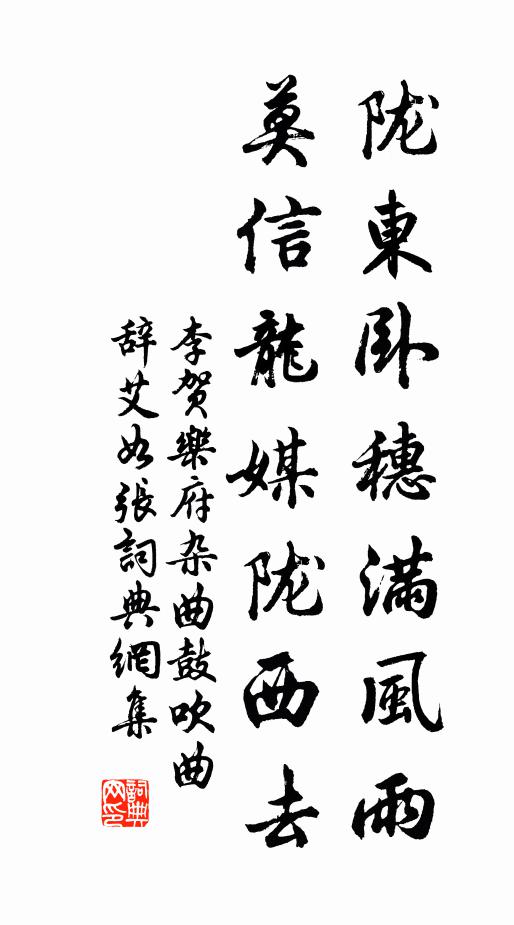 陇東卧穗滿風雨
莫信龍媒陇西去
李贺樂府杂曲鼓吹曲
辞艾如張詞典網集
詞典
网印